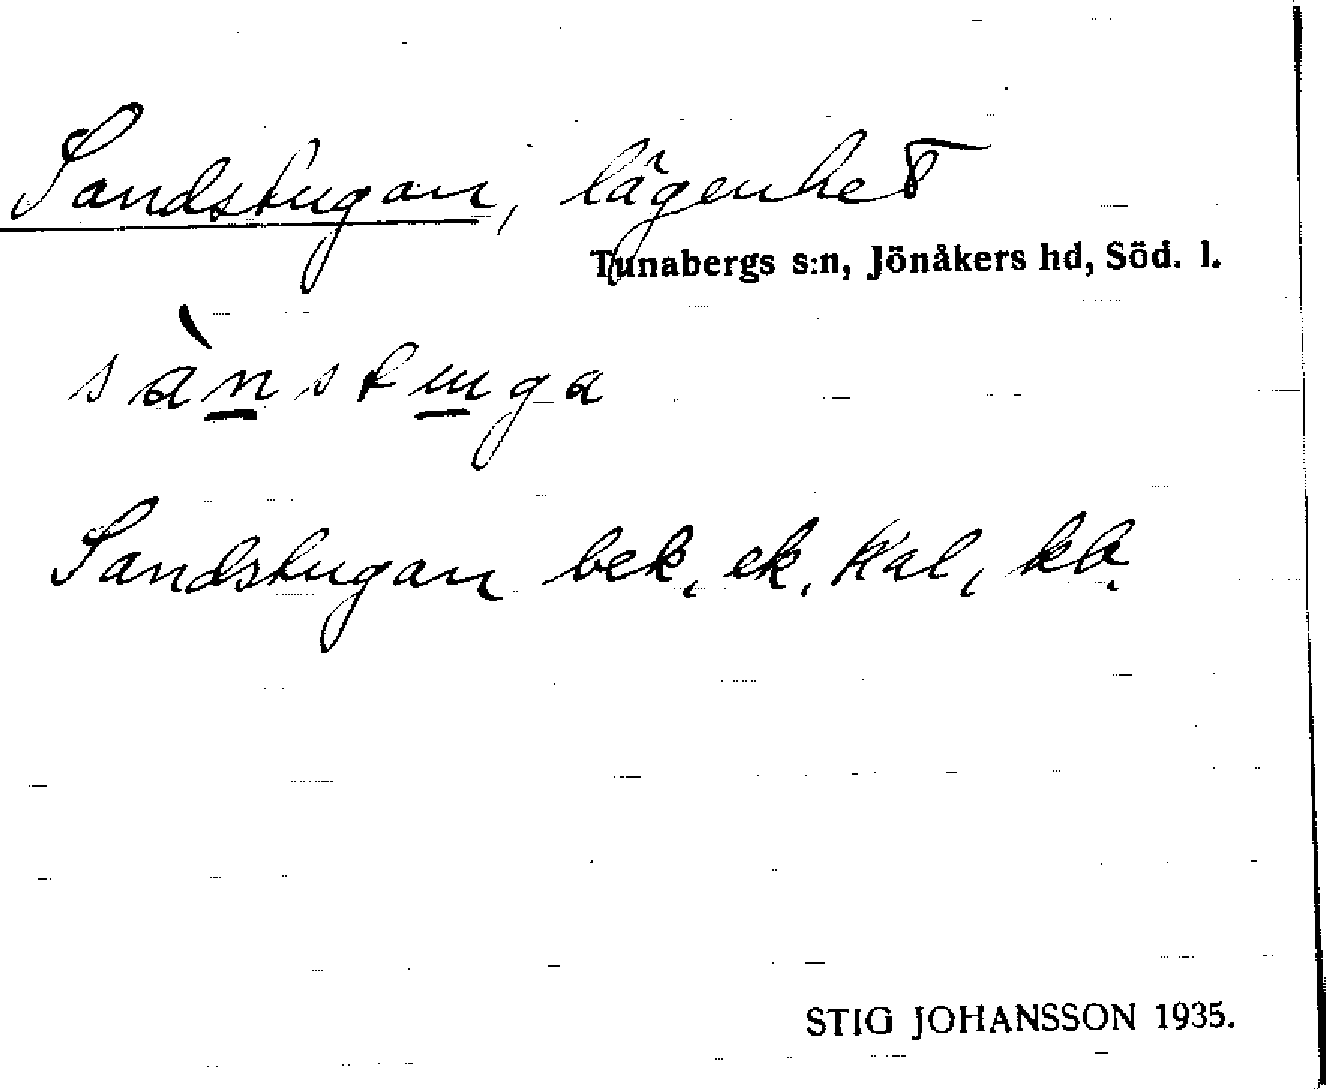 Sandstugan, lägenhet
Tunabergs s:n, Jönåkers hd, Söd. l.
sànstuga
Sandstugan bek, ek, kal, kb.
STIG JOHANSSON 1935.